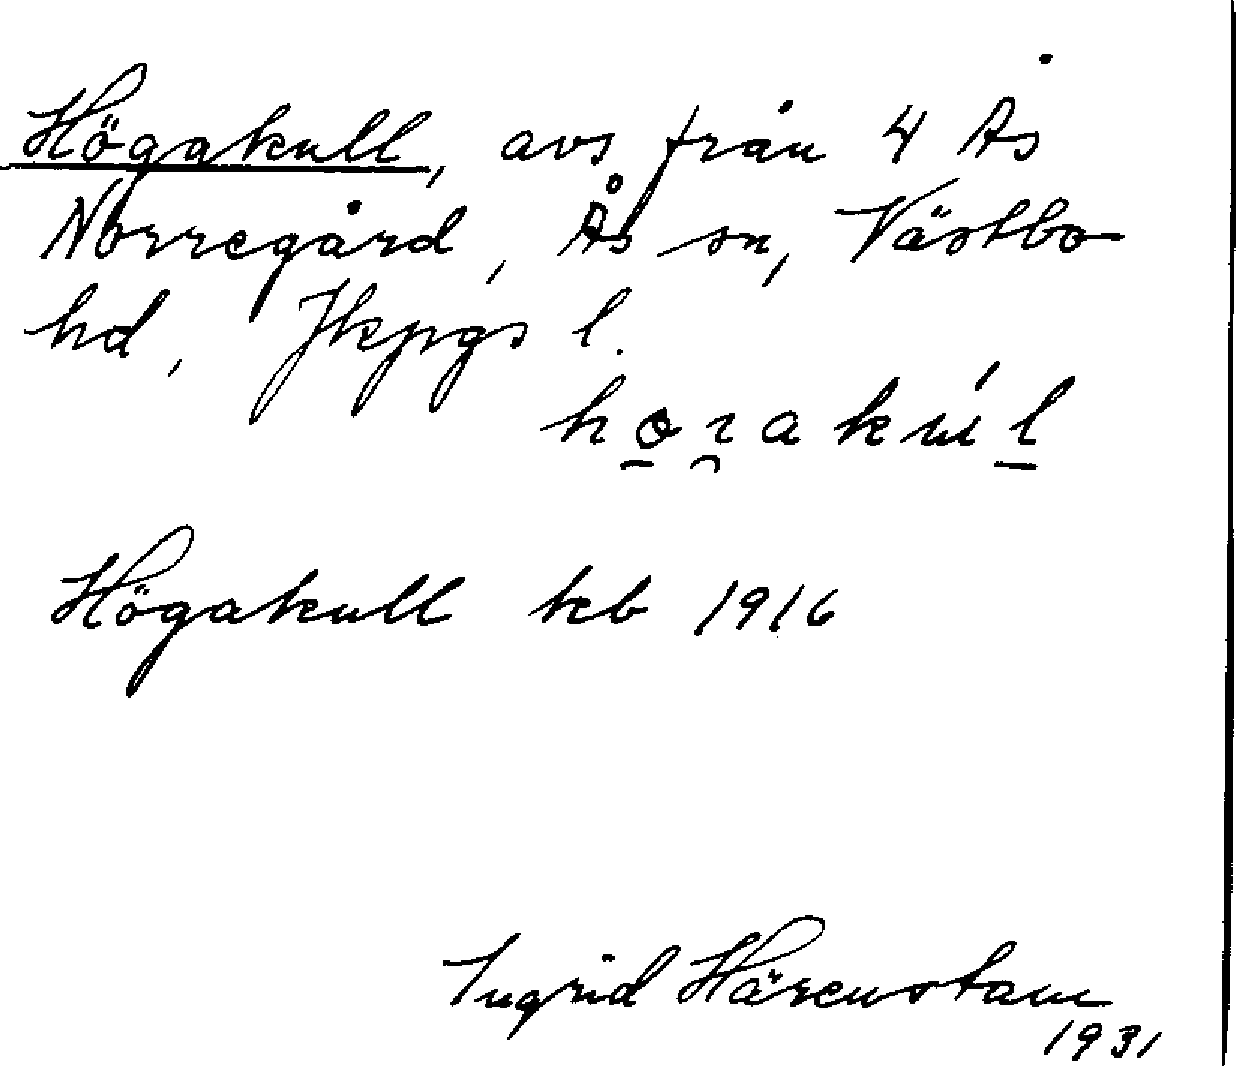 Högakull, avs från 4 Ås
Norregård, Ås sn, Västbo
hd, Jkpgs l.
Högakull kb 1916
Ingrid Härenstam
1931